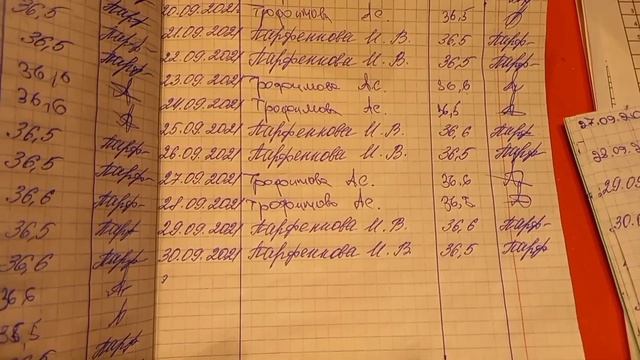 36,5 Парф-
36,5 Парф-
36,6
36,6
36,5 Парф-
36,5 Парф-
36,6 Парф-
36,5 Парф
36,6 Парф-
36,6
36,5
Парф
20.09.2021 Трофимова А.С. 36,5
21.09.2021 Парфенкова И. В 36,5 Парф-
22.09.2021 Парфенкова И. В. 36,5 Парф-
23.09.2021 Трофимова А.С. 36,6
24.09.2021 Трофимова А.С. 36,5
25.09.2021 Парфенкова И. В. 36,6 Парф-
26.09.2021 Парфенкова И. В. 36,5 Парф-
27.09.2021 Трофимова А.С. 36,6
28.09.2021 Трофимова А.С. 36,5
29.09.2021 Парфенкова И. В 36,6 Парф-
30.09.2021 Парфенкова И. В 36,5 Парф
27.09.20